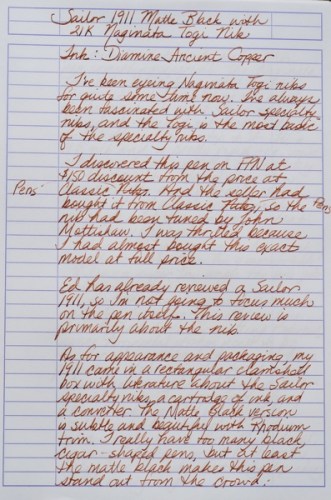 Sailor 1911 Matte Black with
21K Naginata Togi Nib
Ink: Diamine Ancient Copper
I've been eyeing Naginata Togi nibs
for quite some time now. I've always
been fascinated with Sailor specialty
nibs, and the Togi is the most basic
of the specialty nibs.
I discovered this pen on FPN at
$150 discount from the price at
Pens Classic Fountain. And the seller had
bought it from Classic Pens, so the
nib had been tuned by John
Mottishaw. I was thrilled because
I had almost bought this exact
model at full price.
Ed has already reviewed a Sailor
1911, so I'm not going to focus much
on the pen itself. This review is
primarily about the nib.
As for appearance and packaging, my
1911 came in a rectangular clamshell
box with literature about the Sailor
specialty nibs, a cartridge of ink, and
a converter. The Matte Black version
is subtle and beautiful with rhodium
trim. I really have too many black
cigar-shaped pens, but at least
the matte black makes this pen
stand out from the crowd.